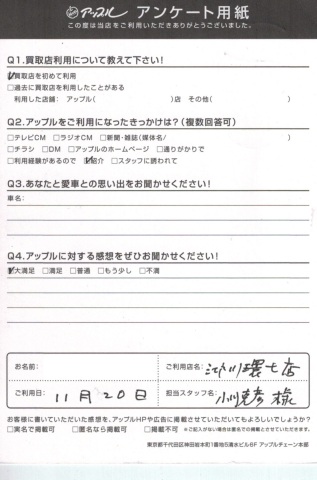 アップル アンケート用紙
この度は当店をご利用いただきありがとうございました。
Q1.買取店利用について教えて下さい!
☑買取を初めて利用
□過去に買取を利用したことがある
利用した店舗: アップル( )店 その他( )
Q2.アップルをご利用になったきっかけは?(複数回答可)
□テレビCM □ラジオCM □新聞・雑誌(媒体名/ )
□チラシ □DM □アップルのホームページ □通りがかりで
□利用経験があるので ☑紹介 □スタッフに誘われて
Q3.あなたと愛車との思い出をお聞かせください!
車名:
Q4.アップルに対する感想をぜひお聞かせください!
☑大満足 □満足 □普通 □もう少し □不満
お名前:
ご利用店名: 江戸川環七店
ご利用日: 11月20日
担当スタッフ名: 小川 様
お客様に書いていただいた感想を、アップルHPや広告に掲載させていただいてもよろしいでしょうか?
□実名で掲載可 □匿名なら掲載可 □掲載不可 ※ご記入がない場合は匿名での掲載とさせていただきます。
東京都千代田区神田岩本町1番地5清水ビル6F アップルチェーン本部